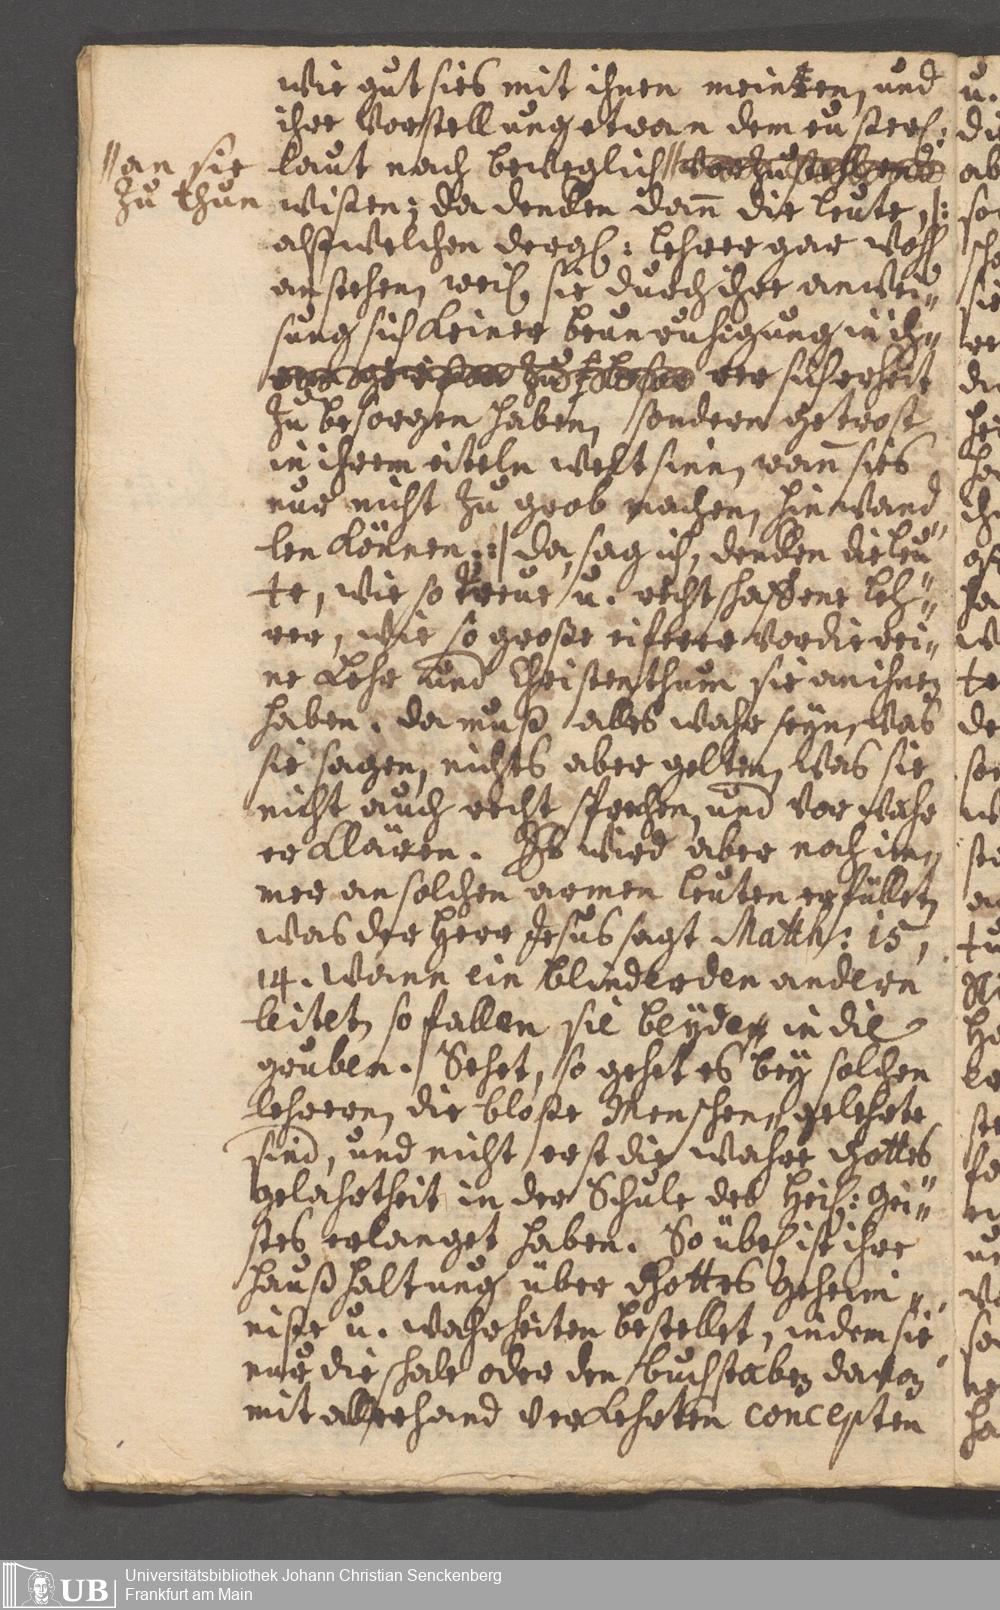 wie gut sies mit ihnen meinten, und
ihre Vorstellung etwan dem euserl:
//an sie
zu thun
laut nach beweglich //
wisten; da dencken dann die leute, /:
alß welchen dergl: lehrer gar wohl
anstehen, weil sie durch ihre anwei„
sung sich keiner beunruhigung in ih„
rer sicherheit
zu besorgen haben, sondern getrost
in ihrem eiteln welt sinn, wann sies
nur nicht zu grob machen, hinwand„
len können. :/ da, sag ich, dencken die leu„
te, wie so treue u. rechtschaffene leh„
rer, wie so große eiferer vor die rei„
ne Lehr und Christenthum sie an ihnen
haben. da muß alles wahr seyn, was
sie sagen, nichts aber gelten, was sie
nicht auch recht sprechen, und vor wahr
erklären. Es wird aber noch im„
mer an solchen armen leuten erfüllet,
was der Herr Jesus sagt Matth: 15,
14. wann ein blinder den andern
leitet, so fallen sie beyde in die
gruben. Sehet, so gehet es bey solchen
lehrern, die bloße Menschen gelehrte
sind, und nicht erst die wahre Gottes
gelahrtheit in der Schule des Heil: Gei„
stes erlanget haben. So übel ist ihre
haußhaltung über Gottes geheim„
niße u. wahrheiten bestellet, indem sie
nur die schale oder den buchstaben davon
mit allerhand verkehrten concepten
Universitätsbibliothek Johann Christian Senckenberg
Frankfurt am Main
UB